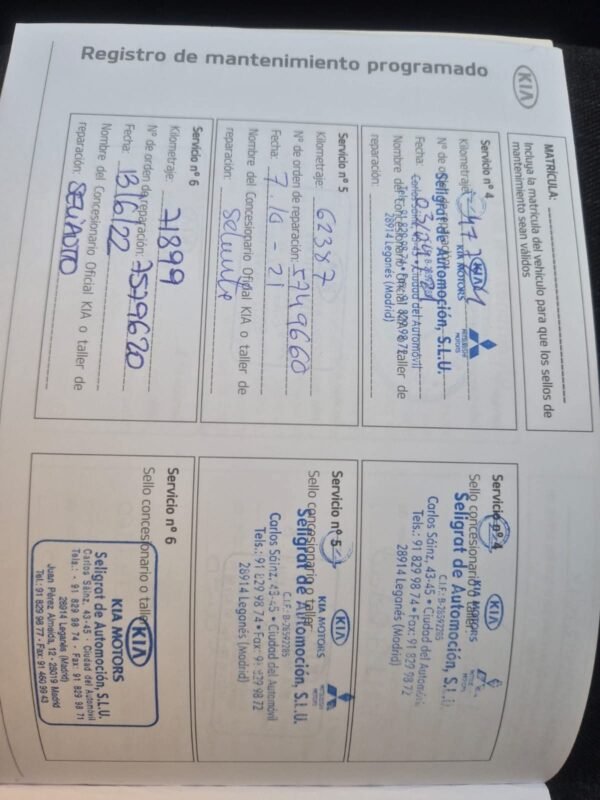 Registro de mantenimiento programado
KIA
MATRÍCULA:
Incluya la matrícula del vehículo para que los sellos de
mantenimiento sean válidos
Servicio nº 4
Kilometraje:
KIA MOTORS
MITSUBISHI MOTORS
Seligrat de Automoción, S.L.U.
Fecha:
Carlos Sáinz, 43-45 • Ciudad del Automóvil
28914 Leganés (Madrid)
reparación:
Servicio nº 4
Sello concesionario o taller
KIA MOTORS
C.I.F.: B-28592285
Seligrat de Automoción, S.L.U.
Carlos Sáinz, 43-45 • Ciudad del Automóvil
Tels.: 91 829 98 74 • Fax: 91 829 98 72
28914 Leganés (Madrid)
Servicio nº 5
Kilometraje: 62387
Nº de orden de reparación: 5749660
Fecha:
Nombre del Concesionario Oficial KIA o taller de
reparación:
Servicio nº 5
Sello concesionario o taller
KIA
KIA MOTORS
MITSUBISHI MOTORS
C.I.F.: B-28592285
Seligrat de Automoción, S.L.U.
Carlos Sáinz, 43-45 • Ciudad del Automóvil
Tels.: 91 829 98 74 • Fax: 91 829 98 72
28914 Leganés (Madrid)
Servicio nº 6
Kilometraje: 71899
Nº de orden de reparación: 7579620
Fecha: 13/6/22
Nombre del Concesionario Oficial KIA o taller de
reparación: SELIAUTO
Servicio nº 6
Sello concesionario o taller
KIA
KIA MOTORS
Seligrat de Automoción, S.L.U.
Carlos Sáinz, 43-45 - Ciudad del Automóvil
Tels.: - 91 829 98 74 - Fax: 91 829 98 71
28914 Leganés (Madrid)
Juan Pérez Almeida, 12 - 28019 Madrid
Tel. 91 829 98 77 - Fax 91 460 99 43